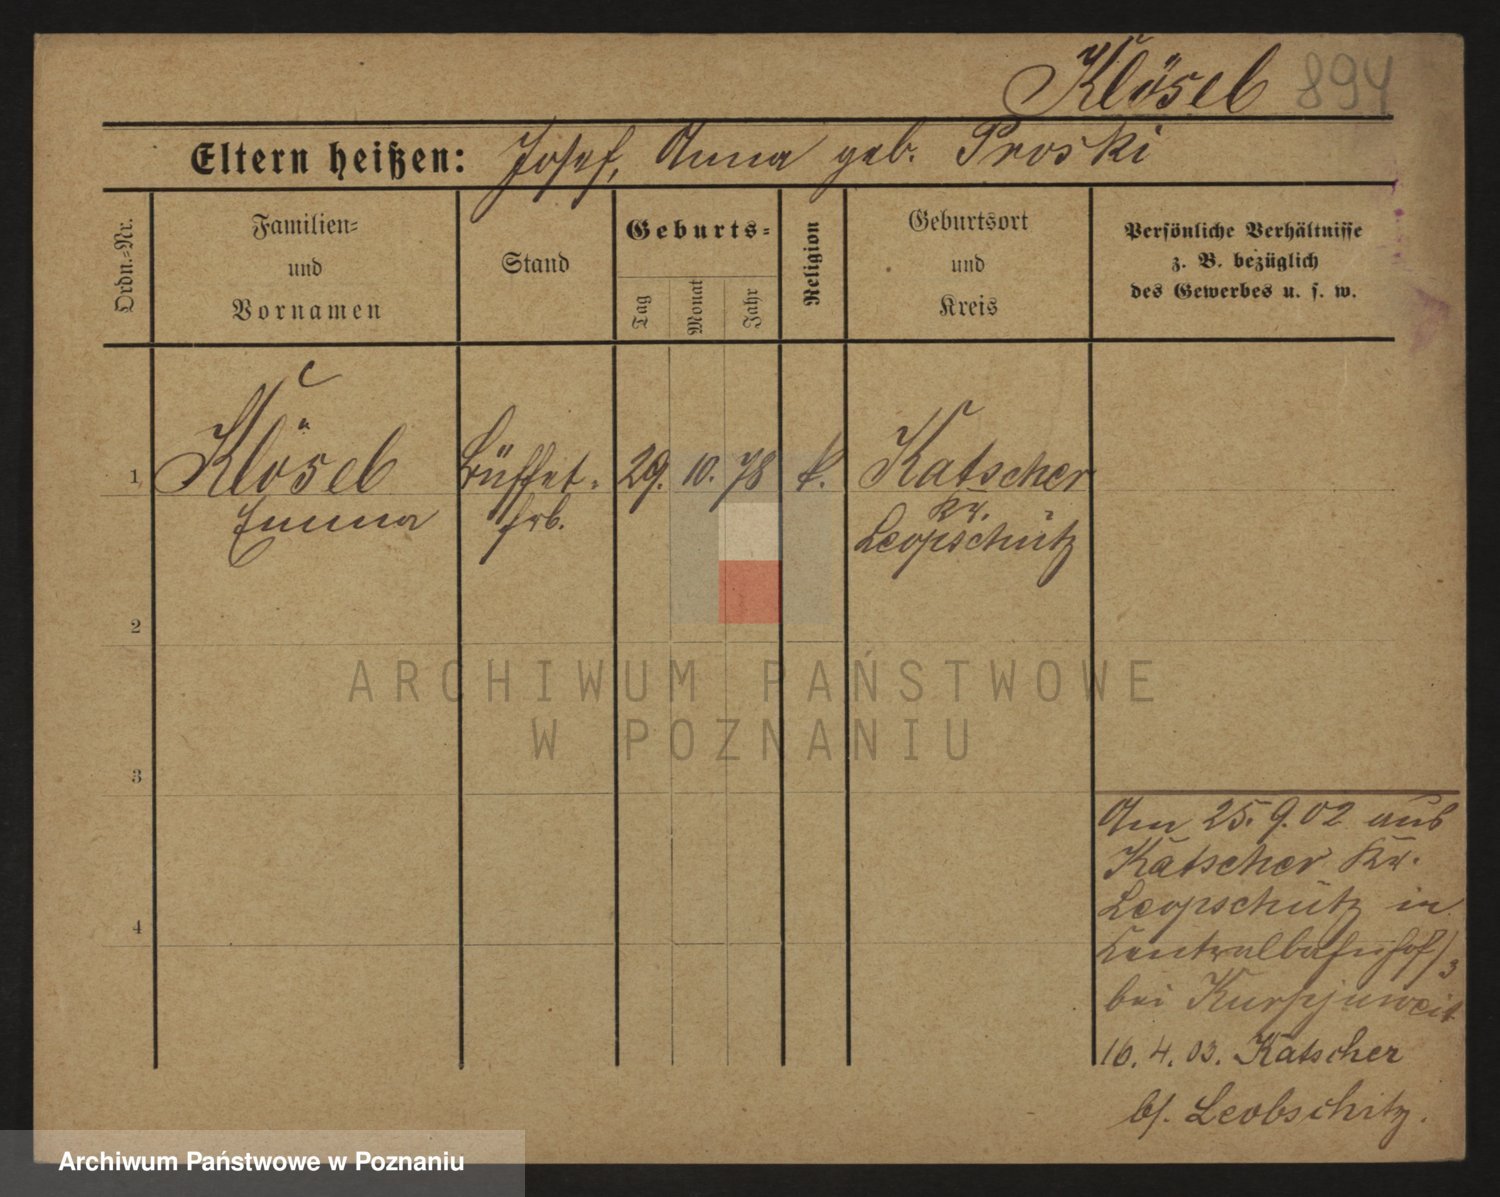 Klösel 894
Eltern heißen: Josef, Anna geb. Proski
Ordn.-Nr.
Familien-
und
Vornamen
Stand
Geburts-
Tag
Monat
Jahr
Religion
Geburtsort
und
Kreis
Persönliche Verhältnisse
z. B. bezüglich
des Gewerbes u. s. w.
1 Klösel Büffet- 29. 10. 78 k. Katscher
Emma frl. Kr.
Leopschütz
2
ARCHIWUM PAŃSTWOWE
W POZNANIU
3
Am 25.9.02 aus
Katscher Kr.
Leopschütz in
4
Centralbahnhof/3
bei
16.4.03. Katscher
b/. Leobschitz.
Archiwum Państwowe w Poznaniu